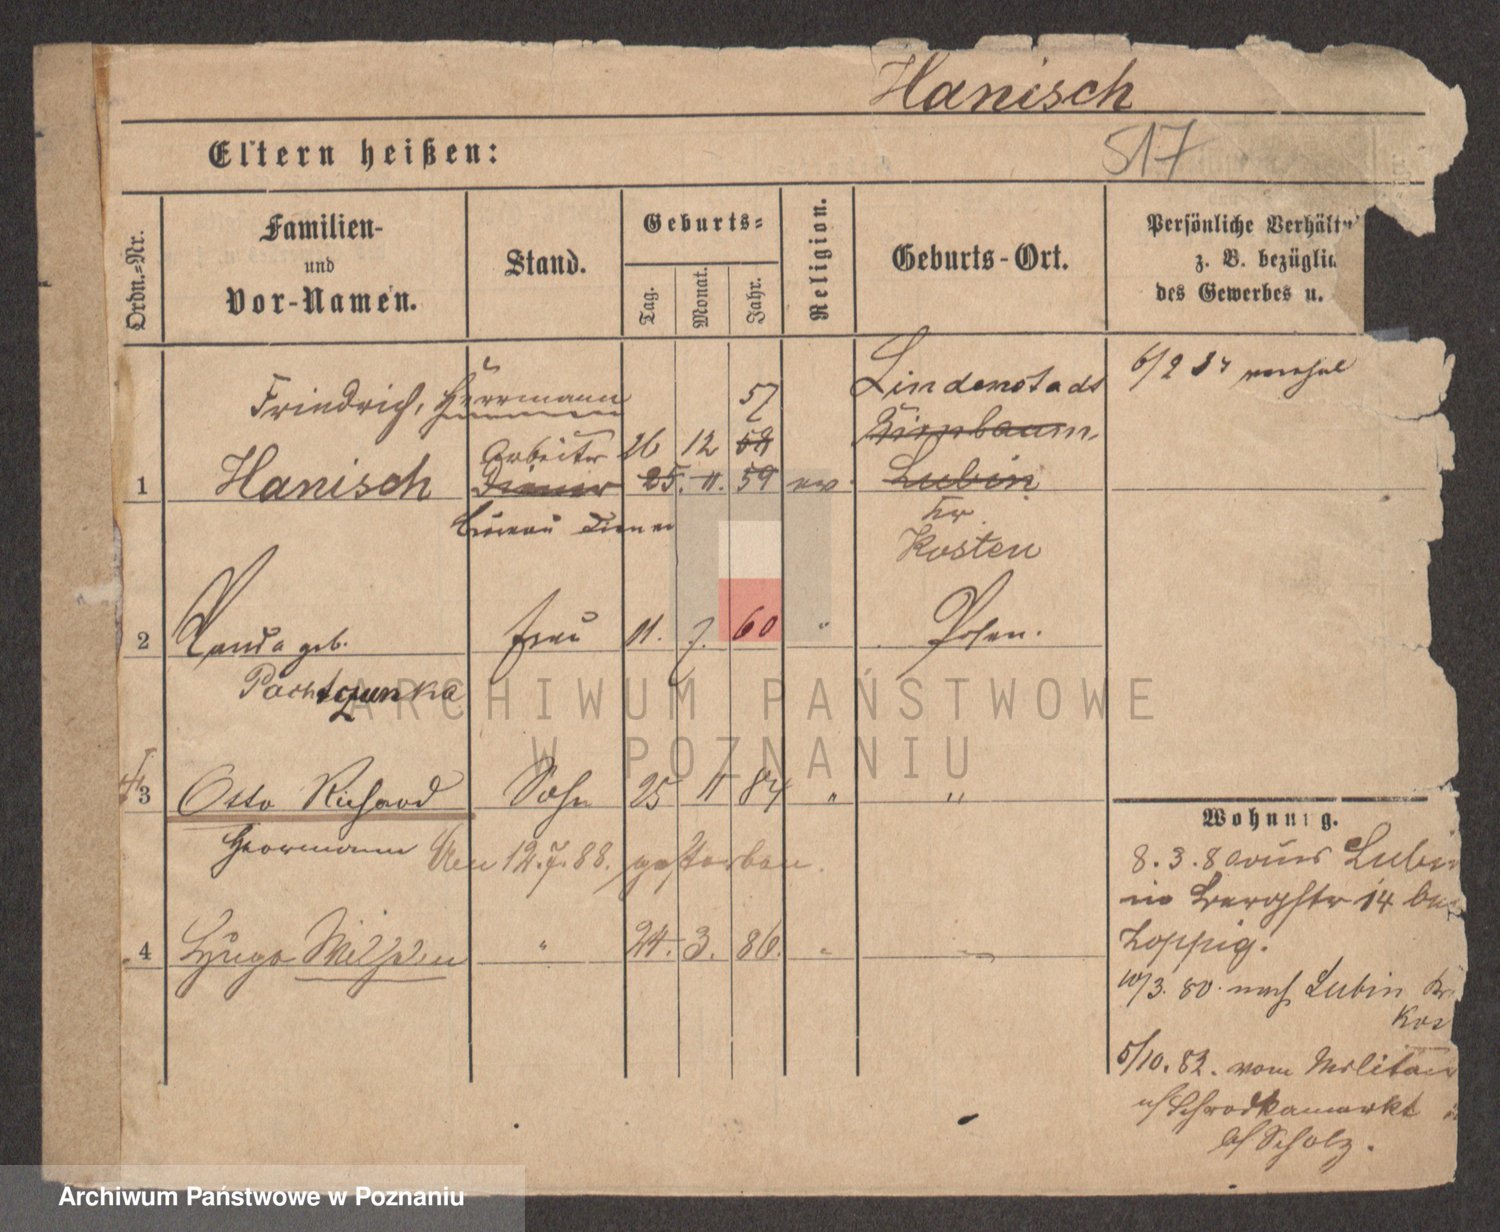 Hanisch
517
Eltern heißen:
Ordn.-Nr.
Familien-
und
Vor-Namen.
Stand.
Geburts-
Tag.
Monat.
Jahr.
Religion.
Geburts-Ort.
Persönliche Verhält
z. B. bezüglic
des Gewerbes u.
Friedrich, Herrmann
57
Lindenstadt
6/2 84
Arbeiter 26 12 58
Birnbaum
1 Hanisch Diener 25. 11. 59 ev Lubin
Bureau Diener
Kr.
Kosten
2 Wanda geb. Frau 11. 7. 60 " Posen.
ARCHIWUM PAŃSTWOWE
W POZNANIU
3 Otto Richard Sohn 25 11 84 " "
Herrmann Den 12.7.88. gestorben.
4 Hugo Wilhelm " 24. 3. 86. "
Wohnung.
8. 3. 80 aus Lubin
in Bergstr 14 bei
10/3. 80. nach Lubin Kr
Kos
5/10. 82. vom Militair
Schrodkamarkt
b/ Scholz.
Archiwum Państwowe w Poznaniu